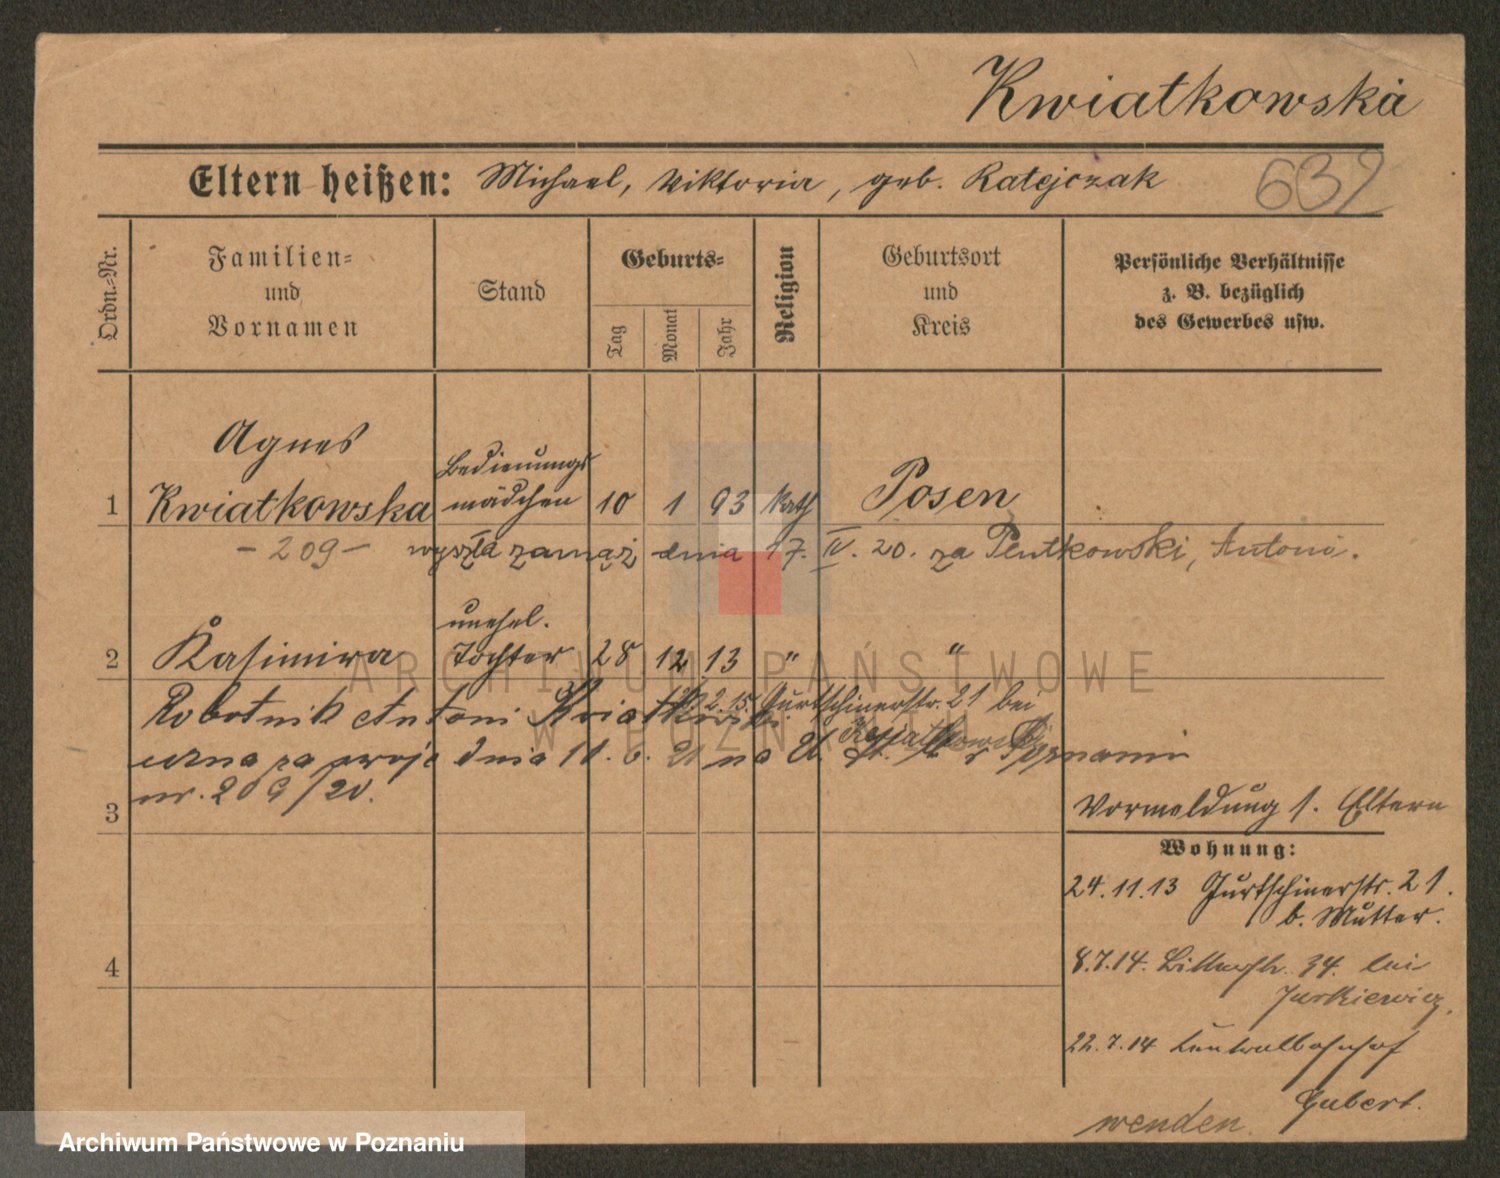 Kwiatkowska
Eltern heißen: Michael, Viktoria, geb. Ratejczak
632
Ordn.-Nr.
Familien-
und
Vornamen
Stand
Geburts-
Tag
Monat
Jahr
Religion
Geburtsort
und
Kreis
Persönliche Verhältnisse
z. B. bezüglich
des Gewerbes usw.
Agnes
Bedienungs
1 Kwiatkowska mädchen 10 1 93 kath Posen
- 209 - wyszła zamąż dnia 17. IV. 20. za Pentkowski, Antoni.
unehel.
2 Kasimira Tochter 28 12 13 " "
2. 15. Gurtschinerstr. 21 bei
Kwiatkowski
Robotnik Antoni Kwiatkowski
uzna za swoje dnia 11. 6. 21 na U. St. w Poznaniu
nr. 209/20.
3
Vormeldung s. Eltern
Wohnung:
24.11.13 Gurtschinerstr. 21.
b. Mutter.
4
8.7.14. 34. bei
Jurkiewicz.
22.7.14 Zentralbahnhof
Gubert.
wenden.
ARCHIWUM PAŃSTWOWE
W POZNANIU
Archiwum Państwowe w Poznaniu